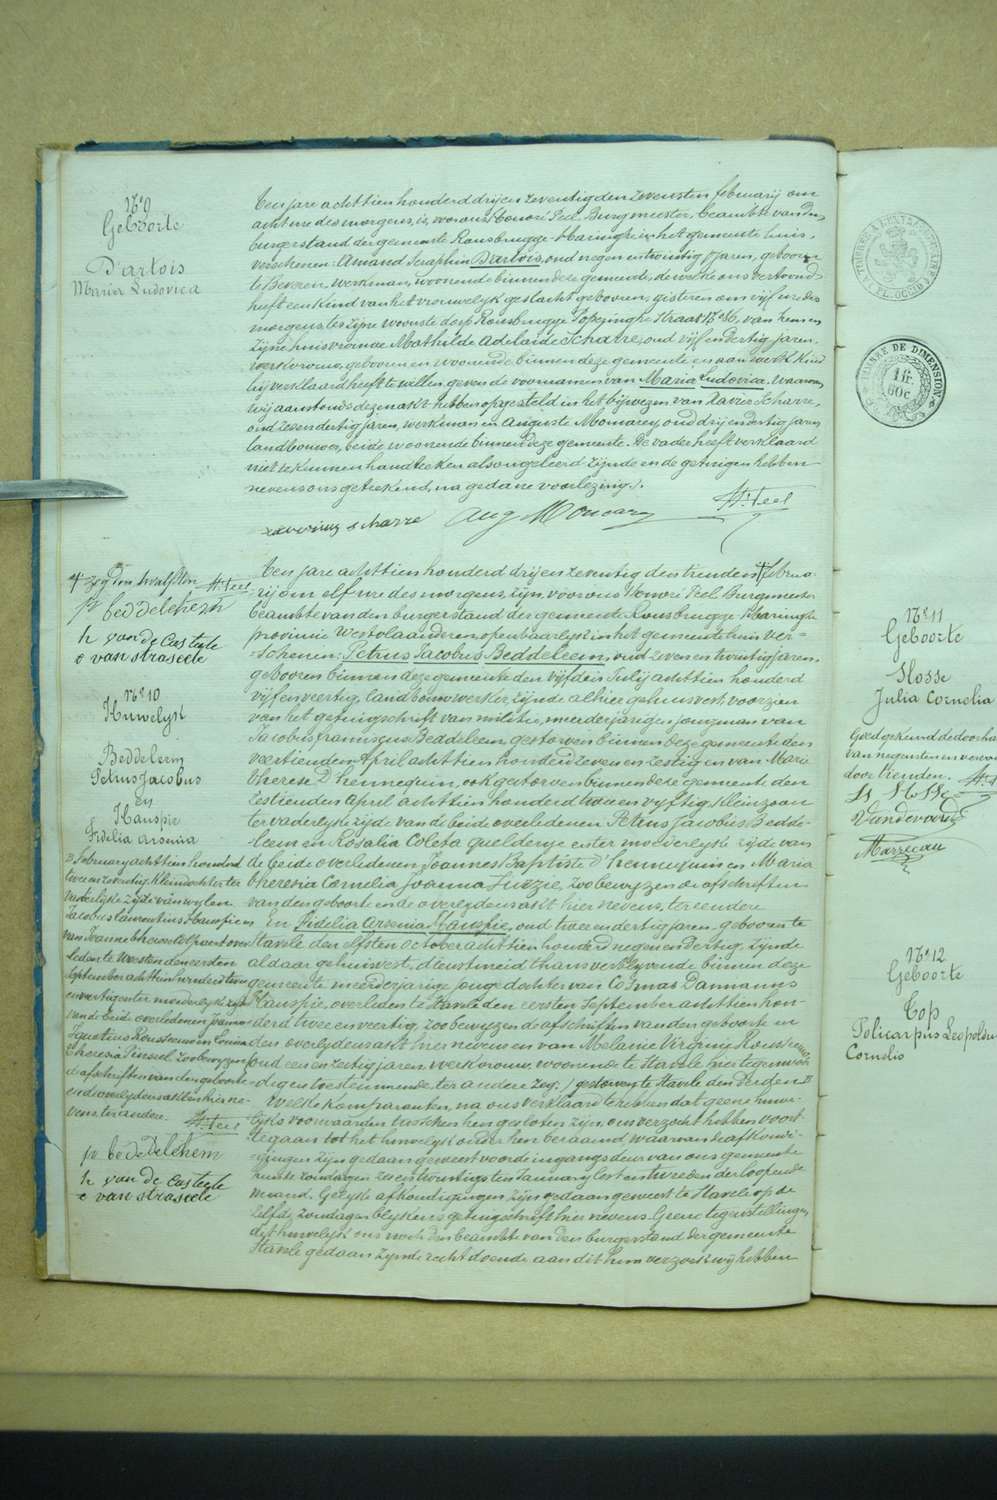 N° 9
Geboorte
D'artois
Maria Ludovica
Ten jare achttien honderd drij en zeventig den zevensten february om
acht ure des morgens, is, voor ons Honoré Peel, Burgmeester, beambte van den
burgerstand der gemeente Rousbrugge-Haringhe in het gemeente huis,
verschenen: Amand Seraphin D'artois, oud negen en twintig jaren, geboren
te Beveren, werkman, woonende binnen deze gemeente, dewelke ons vertoond
heeft een kind van het vrouwelijk geslacht geboren, gisteren om vijf ure des
morgens te zijne woonste dorp Rousbrugge Poperinghe Straat N° 86, van hem en
zijne huisvrouw Mathilde Adelaide Scharre, oud vijf en dertig jaren,
werkvrouw, geboren en woonende binnen deze gemeente en aan welk kind
hij verklaard heeft te willen geven de voornamen van Maria Ludovica. Waarvan
wij aanstonds deze nakt hebben opgesteld in het bijwezen van Xavier Scharre,
oud zes en dertig jaren, werkman en Auguste Moncarey, oud drij en dertig jaren
landbouwer, beide woonende binnen deze gemeente. De vader heeft verklaard
niet te kunnen handteeken als ongeleerd zijnde en de getuigen hebben
nevens ons geteekend, na gedane voorlezing ./.
xaverius scharre Aug Moncarey H. Peel
+ zeg den twalfsten H. Peel
pr beddelehem
h van de Casteele
c van straseele
N° 10
Huwelijk
Beddeleem
Petrus Jacobus
en
Hauspie
Fidelia Arsenia
Ten jare achttien honderd drij en zeventig den trendens + februa-
rij om elf ure des morgens, zijn, voor ons Honoré Peel Burgmeester
beambte van den burgerstand der gemeente Rousbrugge Haringhe
provincie Westvlaanderen, openbaarlijk in het gemeente huis ver-
schenen: Petrus Jacobus Beddeleem, oud zeven en twintig jaren,
geboren binnen deze gemeente den vijfden Julij achttien honderd
vijf en veertig, landbouwwerker, zijnde alhier gehuisvest, voorzien
van het getuigschrift van militie, meerderjarigen jongman van
Jacobus franciscus Beddeleem, gestorven binnen deze gemeente den
veertienden April achttien honderd zeven en zestig en van Marie
Therese D'hennequin, ook gestorven binnen deze gemeente den
zestienden April achttien honderd twee en vijftig, kleinzoon
ter vaderlyke zijde van de beide overledenen Petrus Jacobus Bedde-
leem en Rosalia Coleta Quelderye en ter moederlyke zijde van
de beide overledenen Joannes Baptiste D'hennequin en Maria
Theresia Cornelia Joanna Juzzie, zoo bewyzen de afschriften
van den geboorte ende overlydensakt hier nevens, ter eendere
En Fidelia Arsenia Hauspie, oud twee en dertig jaren, geboren te
Stavele den elfsten October achttien honderd negen en dertig, zijnde
aldaar gehuisvest, dienstmeid thans verblyvende binnen deze
gemeente meerderjarige jonge dochter van Cosmas Damianus
Hauspie, overleden te Stavele den eersten September achttien hon-
derd twee en veertig, zoo bewyzen d'afschriften van den geboorte en
den overlydensakt hier nevens en van Melanie Virginie Rousseeuw
oud een en zestig jaren, werkvrouw, woonende te Stavele hier tegenwoor-
dig en toestemmende, ter andere zeg: / gestorven te Stavele den derden
Welke komparanten, na ons verklaard te hebben dat geene huwe-
lijks voorwaarden tusschen hen gesloten zijn, ons verzocht hebben voort
te gaan tot het huwelyk onder hen beraamd, waarvan de afkondi-
gingen zijn gedaan geweest voor de ingangdeur van ons gemeente
huis de zondagen zes en twintigsten January lest en tweeden der loopende
maand. Gelyke afkondigingen zijn gedaan geweest te Stavele op de
zelfde zondagen blykens getuigschrift hier nevens. Geene tegenstellingen
dit huwelyk ons noch den beambte van den burgerstand der gemeente
Stavele gedaan zijnde recht doende aan dit hun verzoek wij hebben
February achttien honderd
twee en zeventig, kleindochter ter
vaderlijke zijde van wylen
Jacobus Laurentius Hauspie en
van Joanne Therese over-
leden te Westen den eersten
September achttien honderd
en veertig en ter moederlyke zyde
van de beide overledenen
Ignatius Rousseeuw en Louise
Theresia Pinseel, zoo bewyzen
d'afschriften van den geboorte-
en de overlydensakten hier ne-
vens ter andere. H. Peel
pr beddelehem
h van de Casteele
c van straseele
TIMBRE A L'EXTRAORDINAIRE
(FL. OCCID.)
TIMBRE DE DIMENSION
1 fr.
60 c.
N° 11
Geboorte
Hosse
Julia Cornelia
Goedgekeurd de doorha
van negentien en
door henden.
Vandevoorde
Marzeau
N° 12
Geboorte
Top
Policarpus Leopoldus
Cornelis